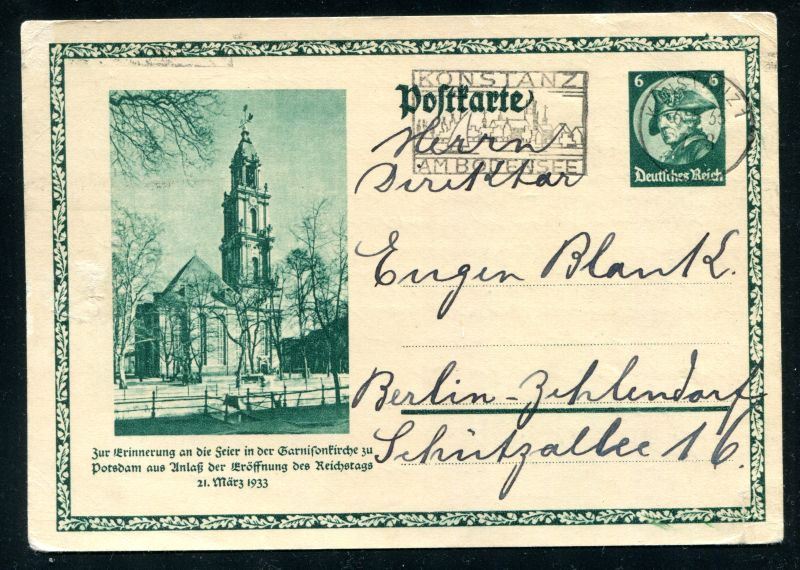 Postkarte
KONSTANZ
AM BODENSEE
6 6
KONSTANZ 1
Deutsches Reich
Herrn
Direktor
Eugen Blank.
Berlin-Zehlendorf
Schützallee 16.
Zur Erinnerung an die Feier in der Garnisonkirche zu
Potsdam aus Anlaß der Eröffnung des Reichstags
21. März 1933